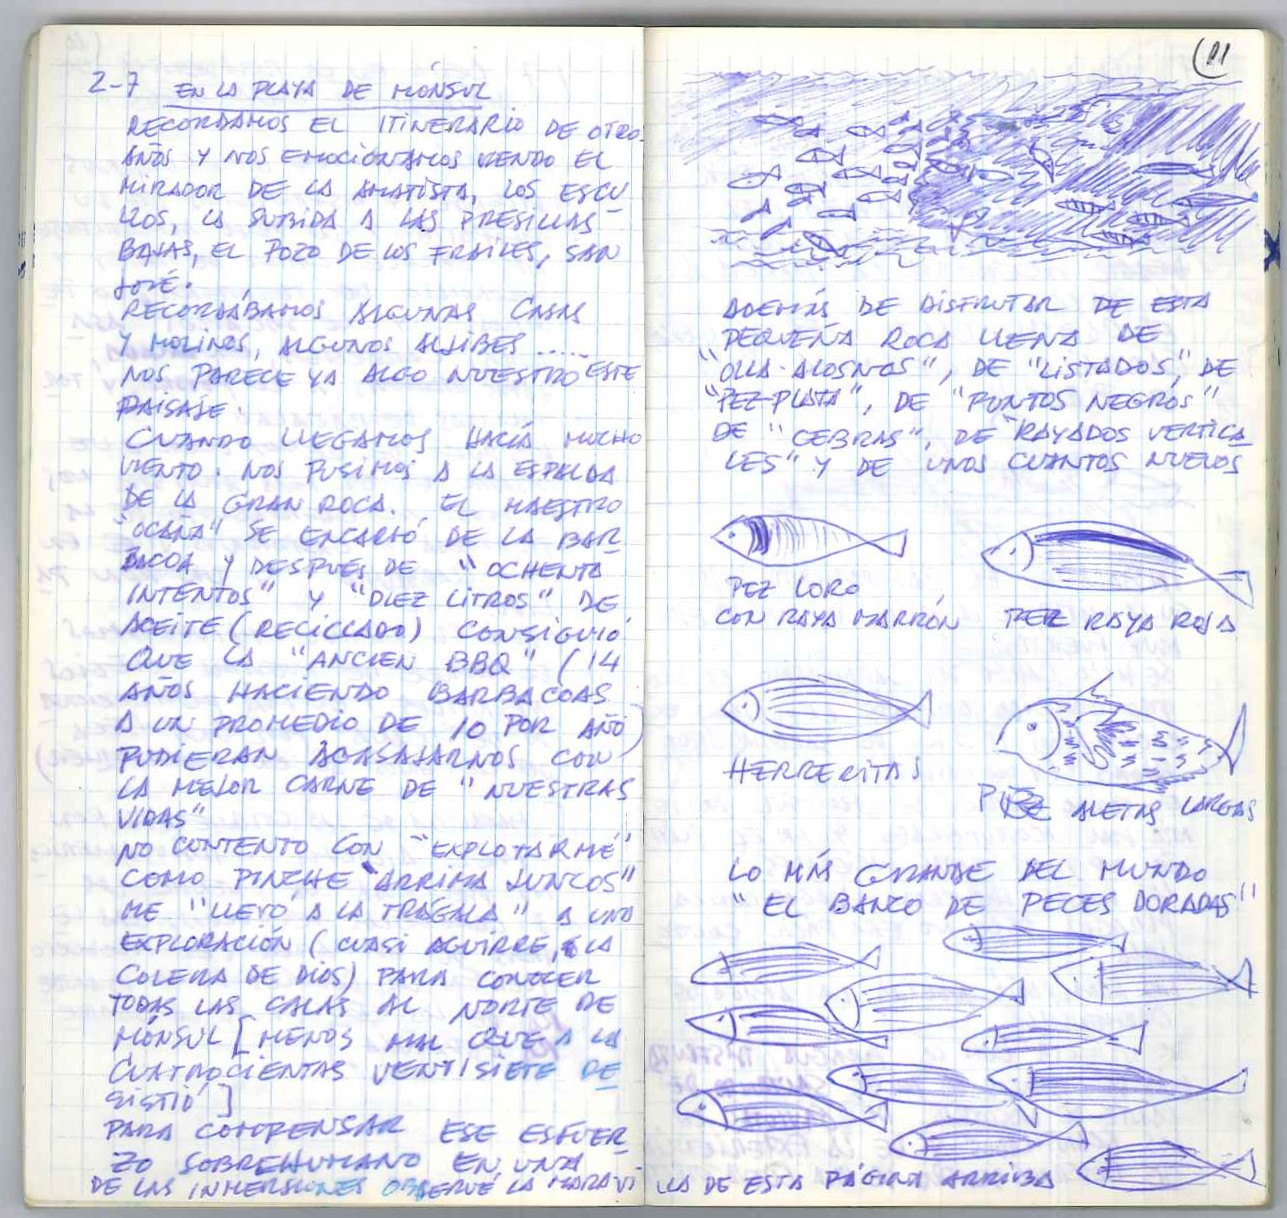 2-7 EN LA PLAYA DE MÓNSUL
RECORDAMOS EL ITINERARIO DE OTRO
AÑOS Y NOS EMOCIONAMOS VIENDO EL
MIRADOR DE LA AMATISTA, LOS ESCU
LLOS, LA SUBIDA A LAS PRESILLAS
BAJAS, EL POZO DE LOS FRAILES, SAN
JOSÉ.
RECORDÁBAMOS ALGUNAS CASAS
Y MOLINOS, ALGUNOS ALJIBES .....
NOS PARECE YA ALGO NUESTRO ESTE
PAISAJE.
CUANDO LLEGAMOS HACÍA MUCHO
VIENTO. NOS PUSIMOS A LA ESPALDA
DE LA GRAN ROCA. EL MAESTRO
"OCAÑA" SE ENCARGÓ DE LA BAR
BACOA Y DESPUES DE "OCHENTA
INTENTOS" Y "DIEZ LITROS" DE
ACEITE (RECICLADO) CONSIGUIÓ
QUE LA "ANCIEN BBQ" (14
AÑOS HACIENDO BARBACOAS
A UN PROMEDIO DE 10 POR AÑO)
PUDIERAN AGASAJARNOS CON
LA MEJOR CARNE DE "NUESTRAS
VIDAS"
NO CONTENTO CON "EXPLOTARME"
COMO PINCHE "ARRIMA JUNCOS"
ME "LLEVÓ A LA TRÁGALA" A UNA
EXPLORACIÓN (CUASI AGUIRRE, LA
COLERA DE DIOS) PARA CONOCER
TODAS LAS CALAS AL NORTE DE
MÓNSUL [MENOS MAL QUE A LA
CUATROCIENTAS VENTISIETE DE
SISTIÓ]
PARA COMPENSAR ESE ESFUER
ZO SOBREHUMANO EN UNA
DE LAS INMERSIONES OBSERVÉ LA MARAVI
(11
ADEMÁS DE DISFRUTAR DE ESTA
PEQUEÑA ROCA LLENA DE
"OLLA-ALOSNOS", DE "LISTADOS", DE
"PEZ-PLATA", DE "PUNTOS NEGROS"
DE "CEBRAS", DE "RAYADOS VERTICA
LES" Y DE UNOS CUANTOS NUEVOS
PEZ LORO
CON RAYA MARRÓN
PEZ RAYA ROJA
HERRERITAS
PEZ ALETAS LARGAS
LO MÁS GRANDE DEL MUNDO
"EL BANCO DE PECES DORADAS"
LLA DE ESTA PÁGINA ARRIBA